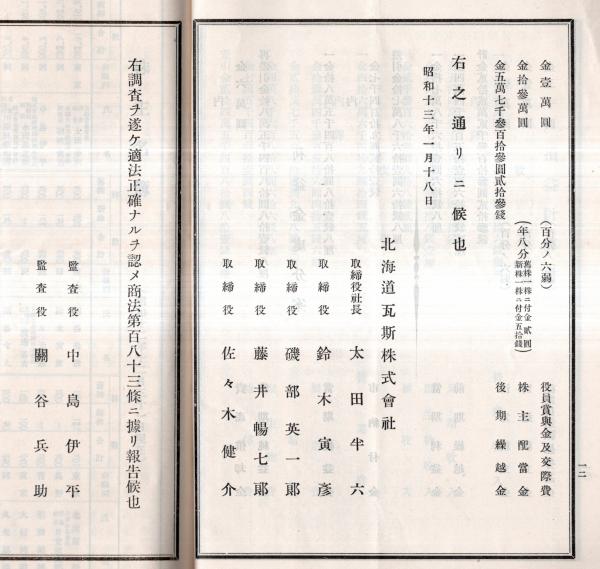 一二
金壹萬圓 (百分ノ六弱) 役員賞與金及交際費
金拾參萬圓 (年八分 舊株一株ニ付金貳圓 新株一株ニ付金五拾錢) 株主配當金
金五萬七千參百拾參圓貳拾參錢 後期繰越金
右之通リニ候也
昭和十三年一月十八日
北海道瓦斯株式會社
取締役社長 太田半六
取締役 鈴木寅彥
取締役 磯部英一郞
取締役 藤井暢七郞
取締役 佐々木健介
右調査ヲ遂ケ適法正確ナルヲ認メ商法第百八十三條ニ據リ報告候也
監査役 中島伊平
監査役 關谷兵助